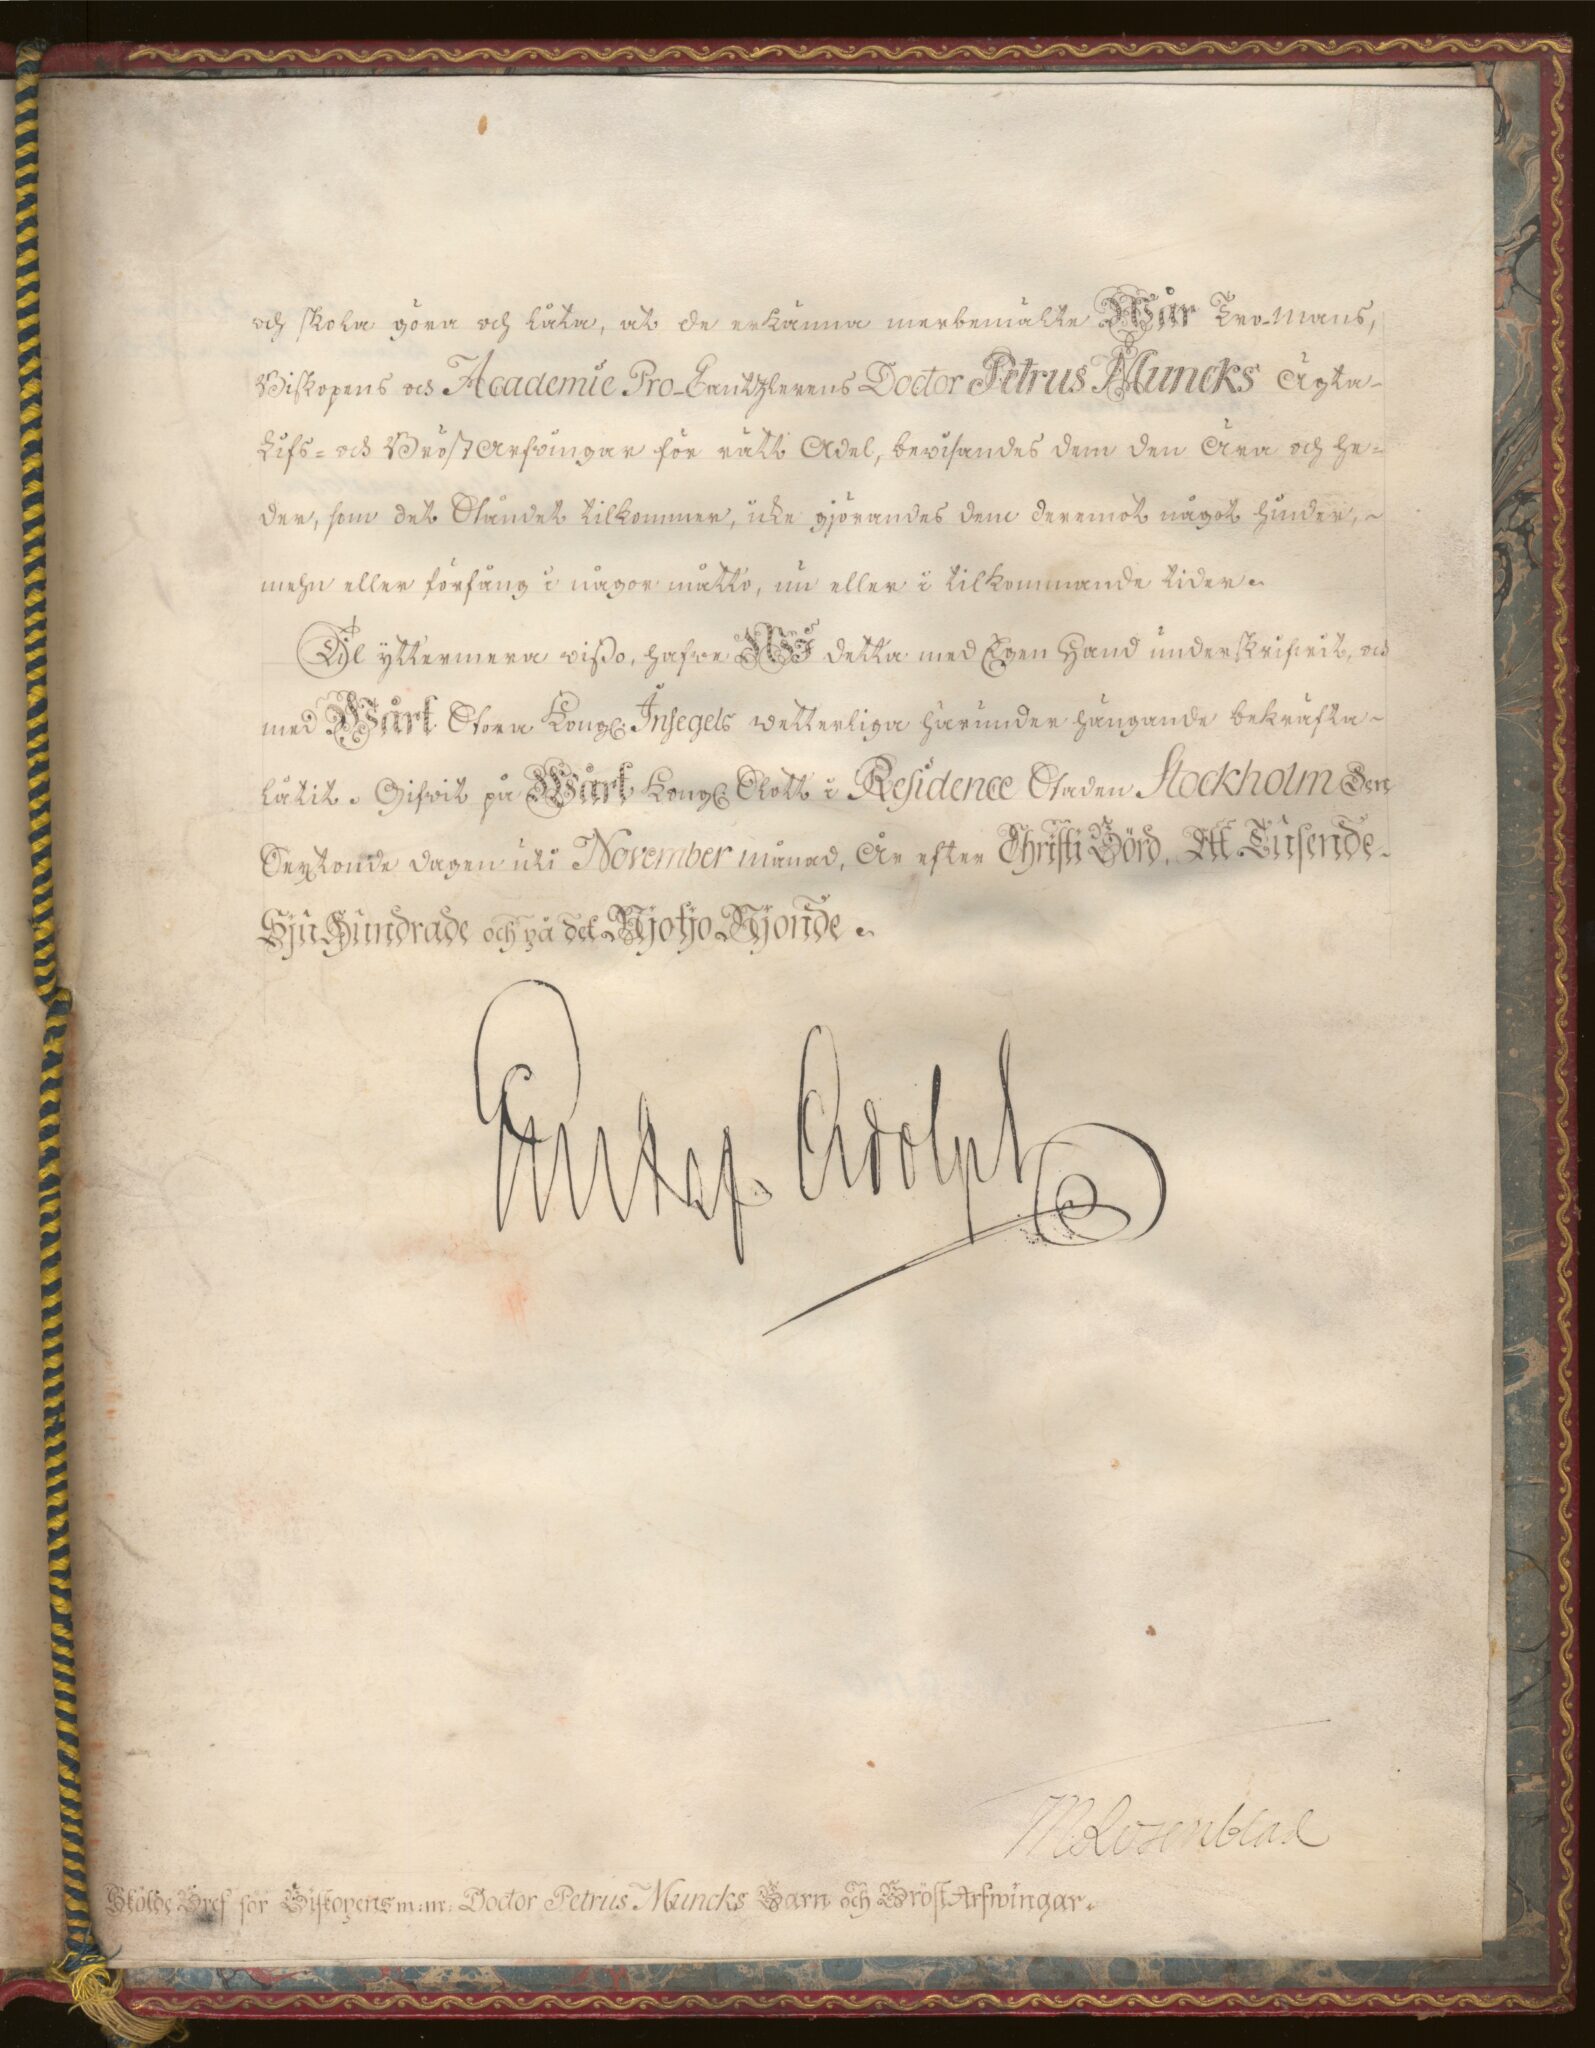 och skola göra och låta, at de erkänna merbemälte Wår Tro-Mans,
Biskopens och Academiæ Pro-Cantzlerens Doctor Petrus Muncks Ägta-
Lifs- och BröstArfvingar för rätt Adel, bevisandes dem den Ära och he-
der, som det Ståndet tilkommer, icke gjörandes dem deremot något hinder,
mehn eller förfång i någor måtto, nu eller i tilkommande tider.
Til yttermera visso, hafve Wi detta med Egen Hand underskrifvit, och
med Wårt Stora Kongl: Insegels wetterliga härunder hängande bekräfta
låtit. Gifvit på Wårt Kongl Slott i Residence Staden Stockholm Den
Sextonde dagen uti November månad, År efter Christi Börd, Ett Tusende
Sju Hundrade och på det Nijotjo Nijonde.
Gustaf Adolph
M Rosenblad
Sköldebref för Biskopens m:m: Doctor Petrus Muncks Barn och BröstArfwingar.